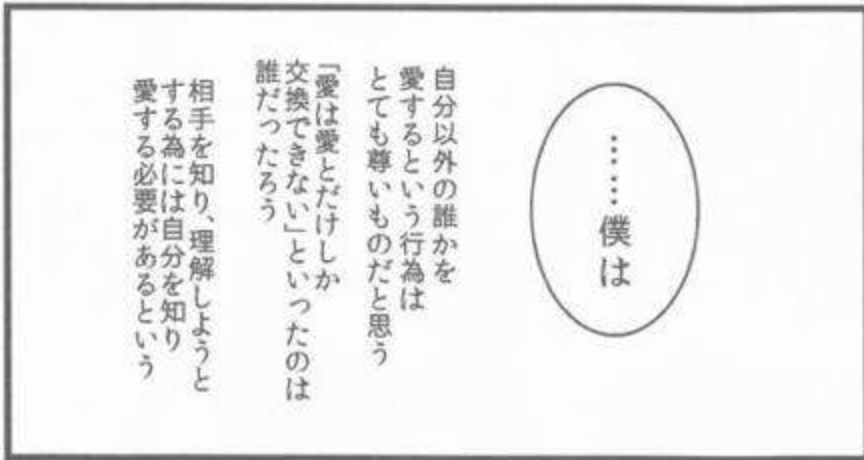 ……僕は
自分以外の誰かを
愛するという行為は
とても尊いものだと思う
「愛は愛とだけしか
交換できない」といったのは
誰だったろう
相手を知り、理解しようと
する為には自分を知り
愛する必要があるという